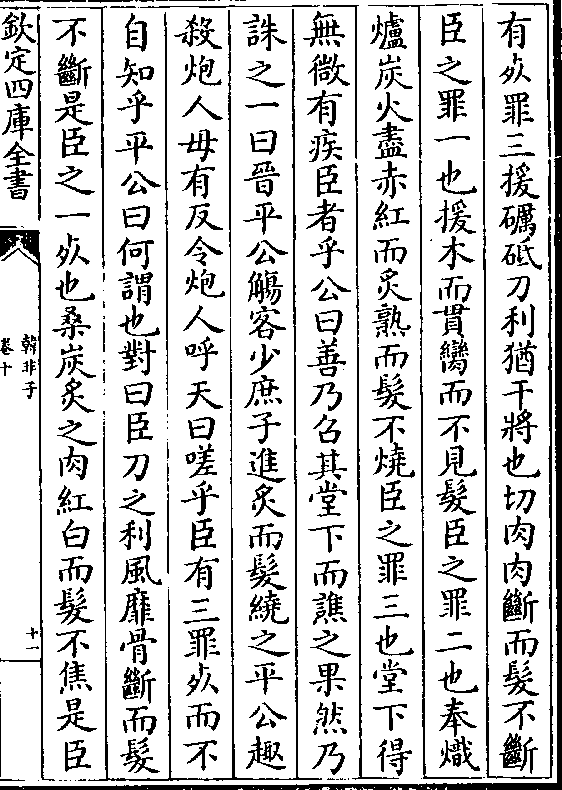 有死罪三援礪砥刀利猶干將也切肉肉斷而髮不斷
臣之罪一也援木而貫臠而不見髮臣之罪二也奉熾
爐炭火盡赤紅而炙熟而髮不燒臣之罪三也堂下得
無微有疾臣者乎公曰善乃召其堂下而譙之果然乃
誅之一曰晉平公觴客少庶子進炙而髮繞之平公趣
殺炮人毋有反令炮人呼天曰嗟乎臣有三罪死而不
自知乎平公曰何謂也對曰臣刀之利風靡骨斷而髮
不斷是臣之一死也桑炭炙之肉紅白而髮不焦是臣
欽定四庫全書
韓非子
卷十
十一